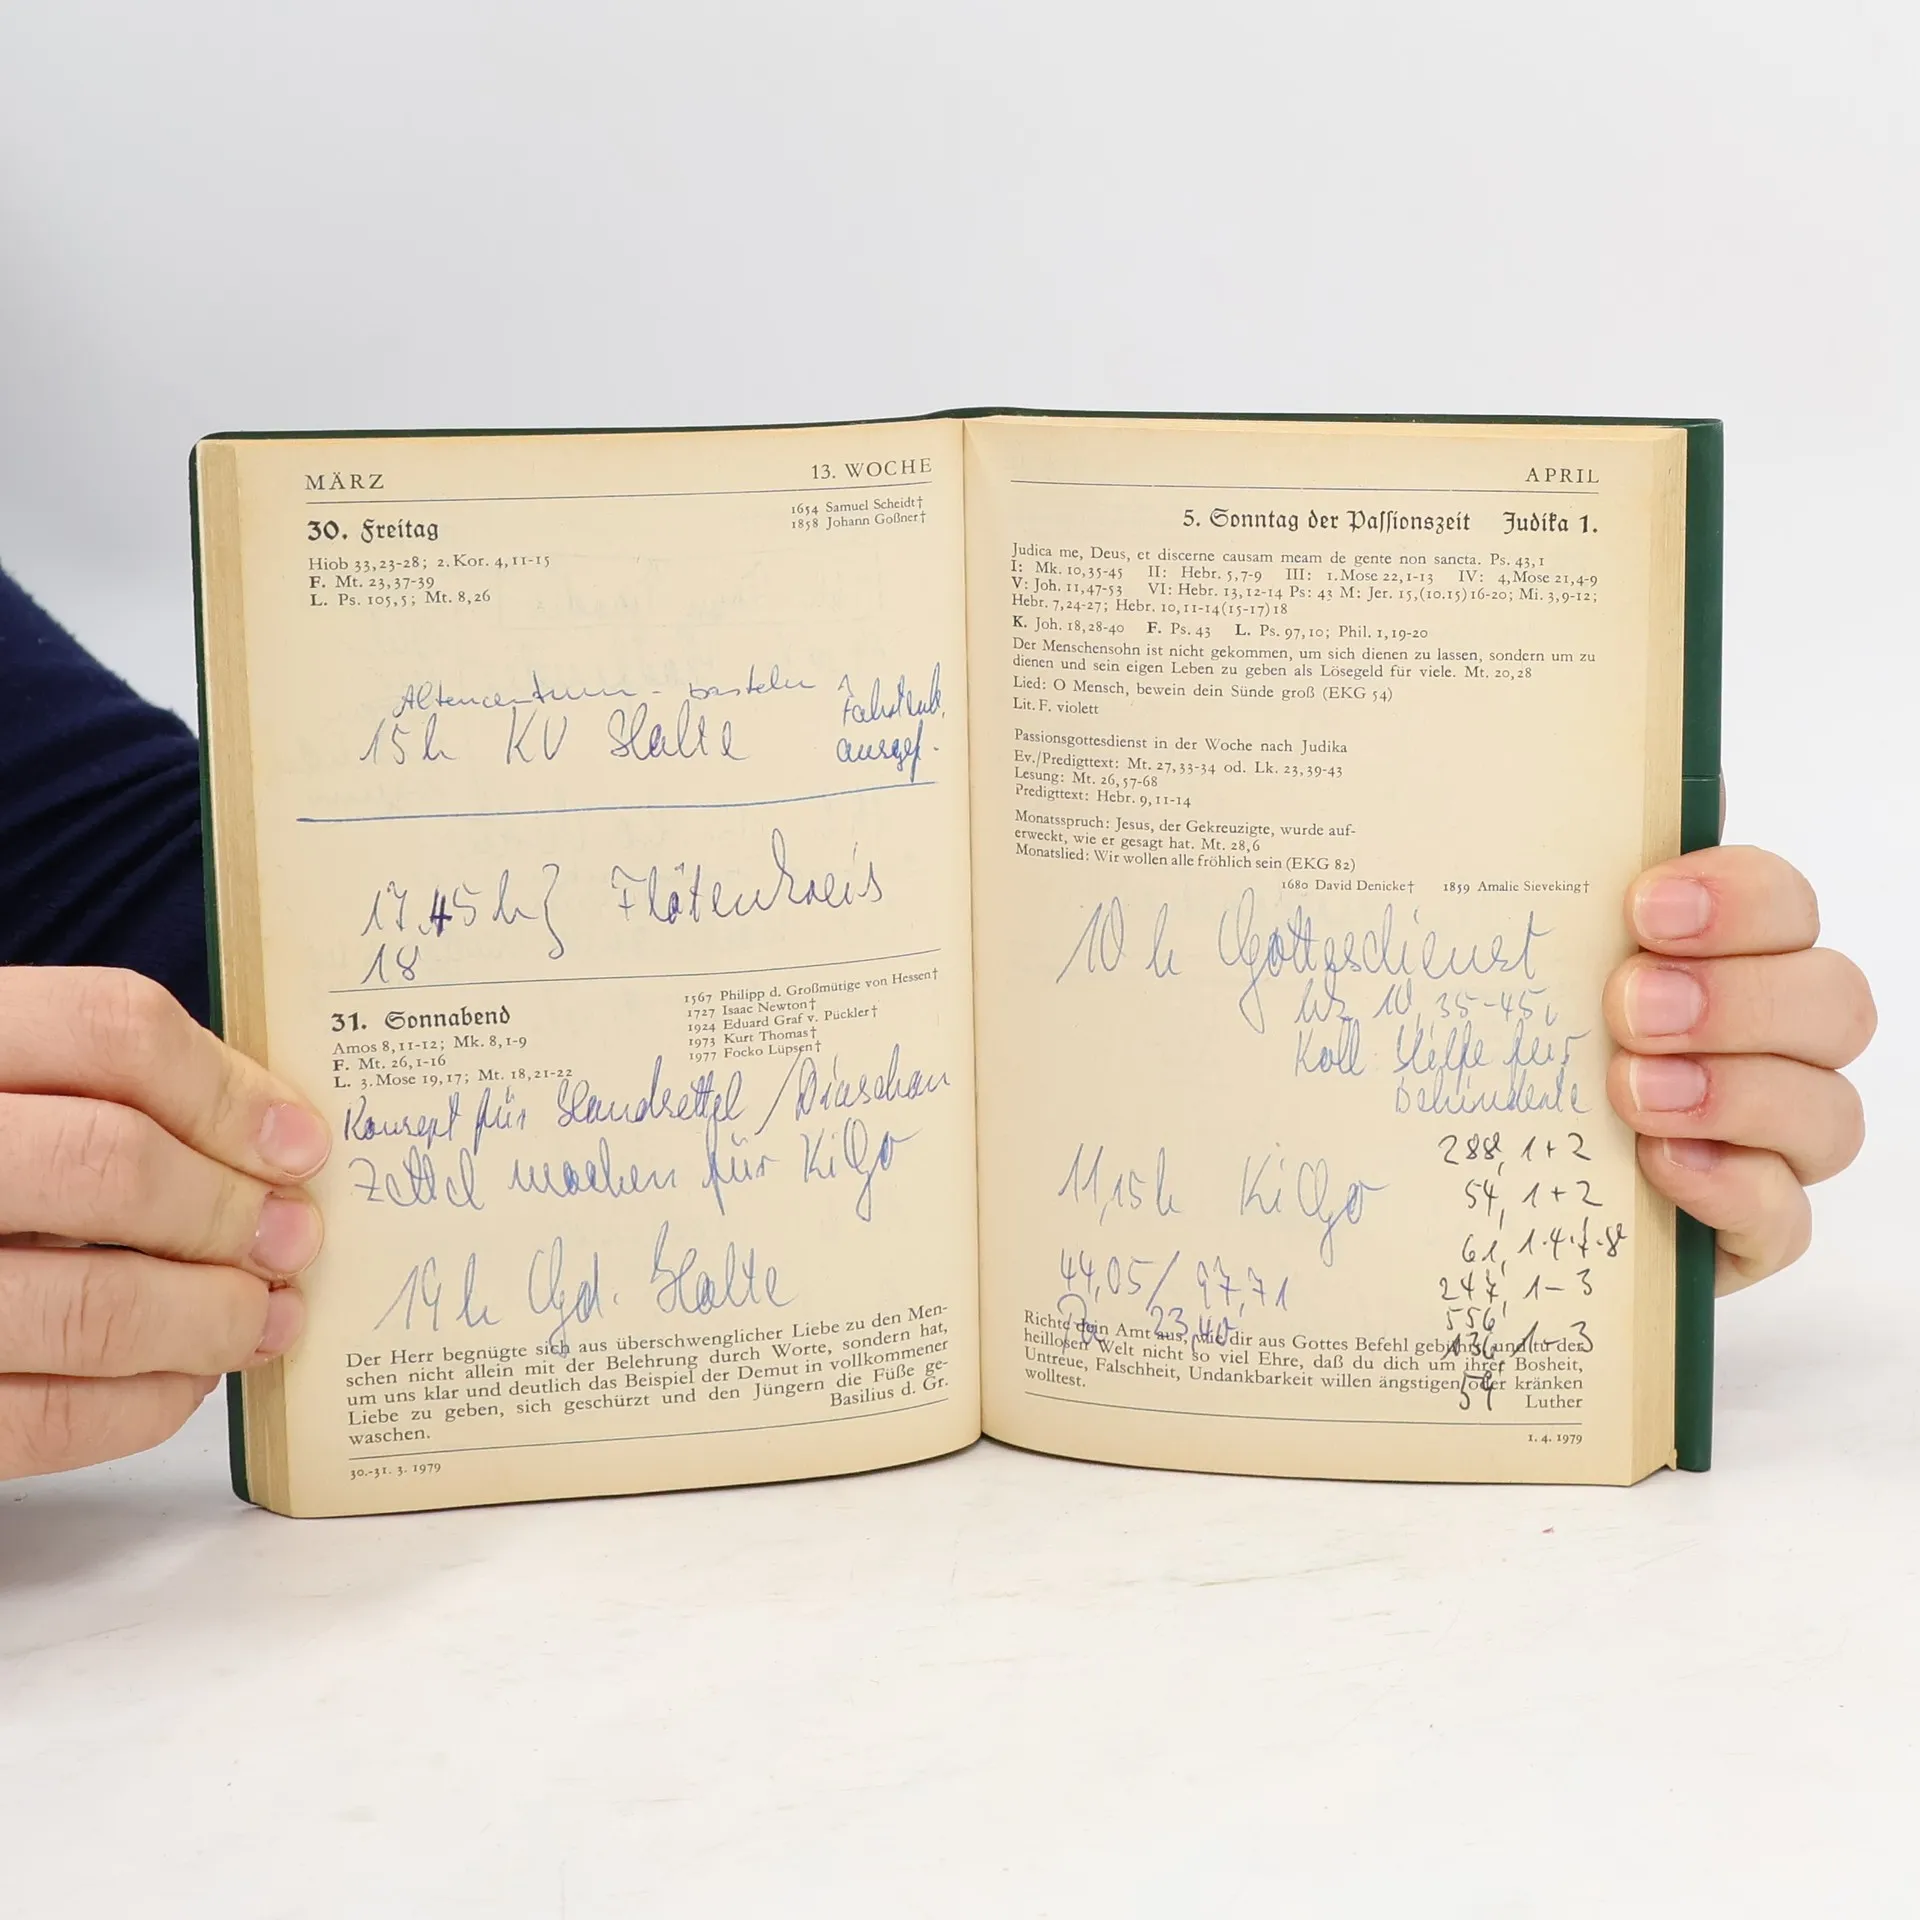 MÄRZ 13. WOCHE
1654 Samuel Scheidt†
1858 Johann Goßner†
30. Freitag
Hiob 33,23-28; 2. Kor. 4,11-15
F. Mt. 23,37-39
L. Ps. 105,5; Mt. 8,26
Altencentrum - basteln
15h KV Halte
ausgef.
17.45h } Flötenkreis
18
31. Sonnabend
1567 Philipp d. Großmütige von Hessen†
1727 Isaac Newton†
1924 Eduard Graf v. Pückler†
1973 Kurt Thomas†
1977 Focko Lüpsen†
Amos 8,11-12; Mk. 8,1-9
F. Mt. 26,1-16
L. 3. Mose 19,17; Mt. 18,21-22
Konzept für Handzettel / Diaschau
Zettel machen für KiGo
19 h Gd. Halte
Der Herr begnügte sich aus überschwenglicher Liebe zu den Men-
schen nicht allein mit der Belehrung durch Worte, sondern hat,
um uns klar und deutlich das Beispiel der Demut in vollkommener
Liebe zu geben, sich geschürzt und den Jüngern die Füße ge-
waschen. Basilius d. Gr.
30.-31. 3. 1979
APRIL
5. Sonntag der Passionszeit Judika 1.
Judica me, Deus, et discerne causam meam de gente non sancta. Ps. 43,1
I: Mk. 10,35-45 II: Hebr. 5,7-9 III: 1. Mose 22,1-13 IV: 4, Mose 21,4-9
V: Joh. 11,47-53 VI: Hebr. 13,12-14 Ps: 43 M: Jer. 15,(10.15)16-20; Mi. 3,9-12;
Hebr. 7,24-27; Hebr. 10,11-14(15-17)18
K. Joh. 18,28-40 F. Ps. 43 L. Ps. 97,10; Phil. 1,19-20
Der Menschensohn ist nicht gekommen, um sich dienen zu lassen, sondern um zu
dienen und sein eigen Leben zu geben als Lösegeld für viele. Mt. 20,28
Lied: O Mensch, bewein dein Sünde groß (EKG 54)
Lit. F. violett
Passionsgottesdienst in der Woche nach Judika
Ev./Predigttext: Mt. 27,33-34 od. Lk. 23,39-43
Lesung: Mt. 26,57-68
Predigttext: Hebr. 9,11-14
Monatsspruch: Jesus, der Gekreuzigte, wurde auf-
erweckt, wie er gesagt hat. Mt. 28,6
Monatslied: Wir wollen alle fröhlich sein (EKG 82)
1680 David Denicke† 1859 Amalie Sieveking†
10 h Gottesdienst
10, 35-45,
Koll. Hilfe für
Behinderte
288, 1+2
11,15h KiGo
54, 1+2
61, 1.4.7.8
44,05 / 97,71
247, 1-3
23,40
556,
136, 1-3
54
Richte dein Amt aus, wie dir aus Gottes Befehl gebührt, und tu der
heillosen Welt nicht so viel Ehre, daß du dich um ihrer Bosheit,
Untreue, Falschheit, Undankbarkeit willen ängstigen oder kränken
wolltest. Luther
1. 4. 1979